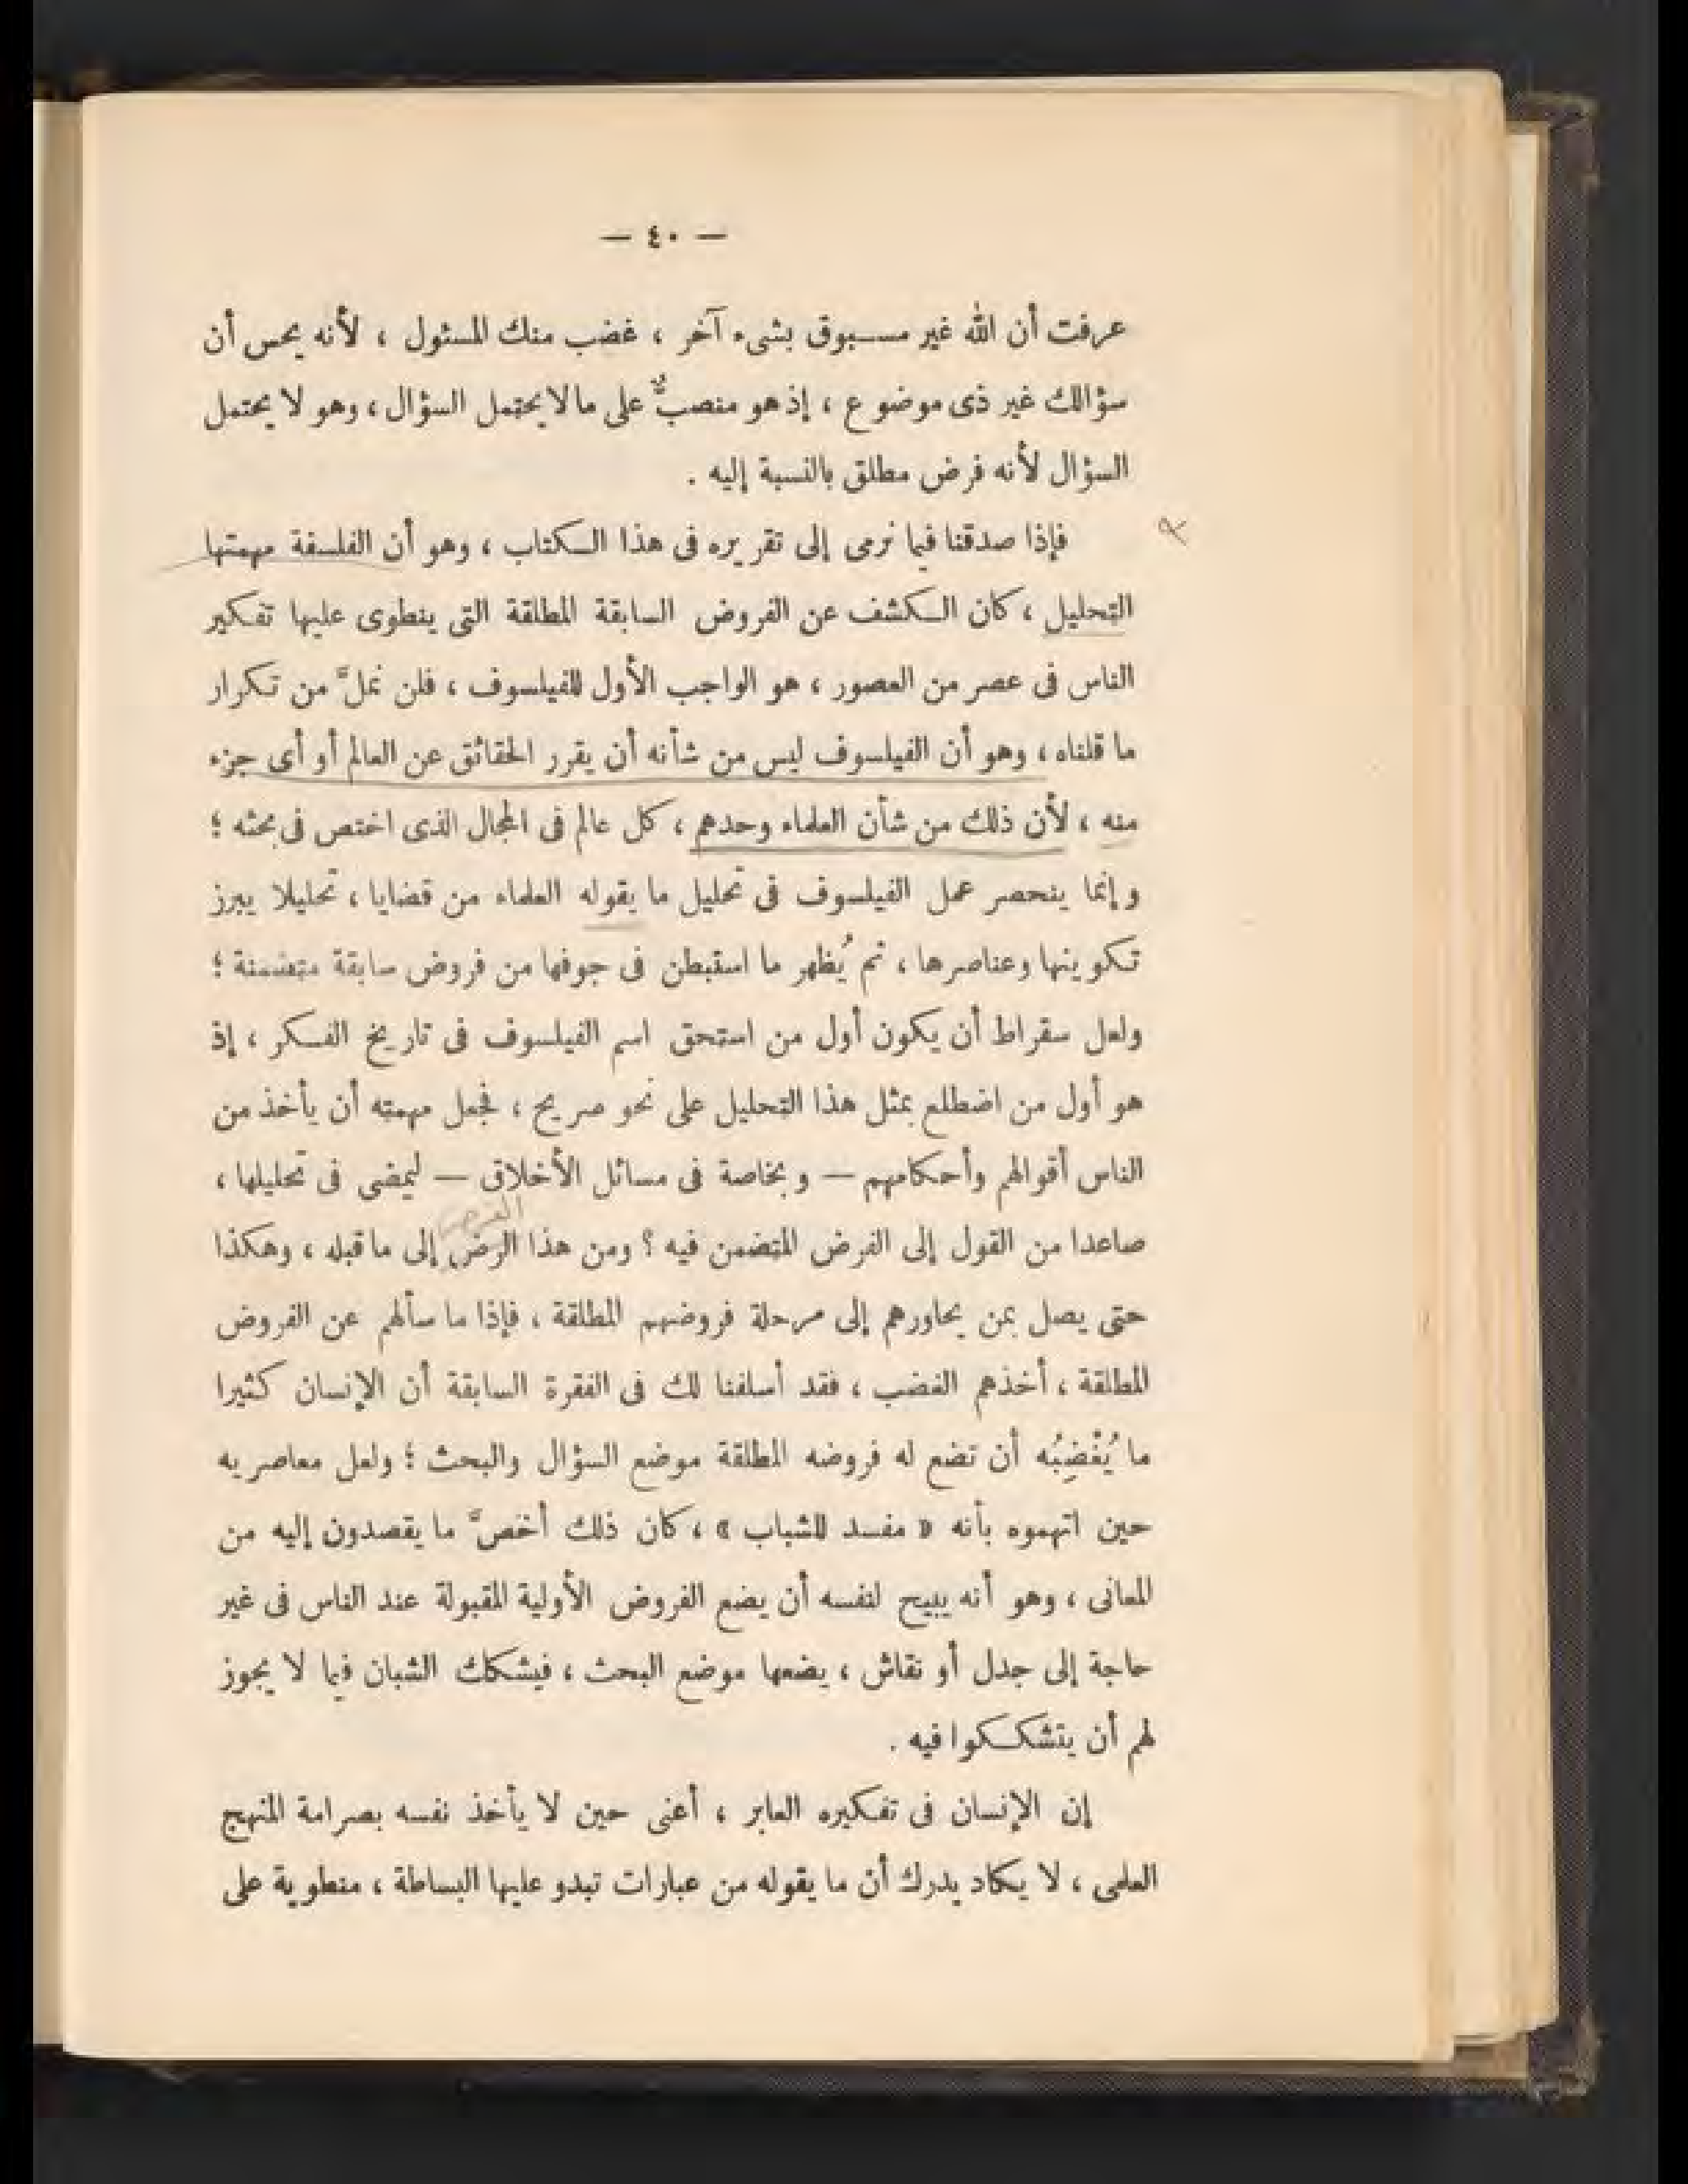 — ٤٠ —
عرفت أن الله غير مسبوق بشىء آخر ، غضب منك المسئول ، لأنه يحس أن
سؤالك غير ذى موضوع ، إذ هو منصبٌّ على ما لا يحتمل السؤال ، وهو لا يحتمل
السؤال لأنه فرض مطلق بالنسبة إليه .
فإذا صدقنا فيما نرمى إلى تقريره فى هذا الكتاب ، وهو أن الفلسفة مهمتها
التحليل ، كان الكشف عن الفروض السابقة المطلقة التى ينطوى عليها تفكير
الناس فى عصر من العصور ، هو الواجب الأول للفيلسوف ، فلن نملَّ من تكرار
ما قلناه ، وهو أن الفيلسوف ليس من شأنه أن يقرر الحقائق عن العالم أو أى جزء
منه ، لأن ذلك من شأن العلماء وحدهم ، كل عالم فى المجال الذى اختص فى بحثه ؛
وإنما ينحصر عمل الفيلسوف فى تحليل ما يقوله العلماء من قضايا ، تحليلا يبرز
تكوينها وعناصرها ، ثم يُظهر ما استبطن فى جوفها من فروض سابقة متضمنة ؛
ولعل سقراط أن يكون أول من استحق اسم الفيلسوف فى تاريخ الفكر ، إذ
هو أول من اضطلع بمثل هذا التحليل على نحو صريح ، فجعل مهمته أن يأخذ من
الناس أقوالهم وأحكامهم — وبخاصة فى مسائل الأخلاق — ليمضى فى تحليلها ،
الفرض
صاعدا من القول إلى الفرض المتضمن فيه ؟ ومن هذا الرض إلى ما قبله ، وهكذا
حتى يصل بمن يحاورهم إلى مرحلة فروضهم المطلقة ، فإذا ما سألهم عن الفروض
المطلقة ، أخذهم الغضب ، فقد أسلفنا لك فى الفقرة السابقة أن الإنسان كثيرا
ما يُغْضِبُه أن تضع له فروضه المطلقة موضع السؤال والبحث ؛ ولعل معاصريه
حين اتهموه بأنه « مفسد للشباب » ، كان ذلك أخصَّ ما يقصدون إليه من
المعانى ، وهو أنه يبيح لنفسه أن يضع الفروض الأولية المقبولة عند الناس فى غير
حاجة إلى جدل أو نقاش ، يضعها موضع البحث ، فيشكك الشبان فيما لا يجوز
لهم أن يتشككوا فيه .
إن الإنسان فى تفكيره العابر ، أعنى حين لا يأخذ نفسه بصرامة المنهج
العلمى ، لا يكاد يدرك أن ما يقوله من عبارات تبدو عليها البساطة ، منطوية على